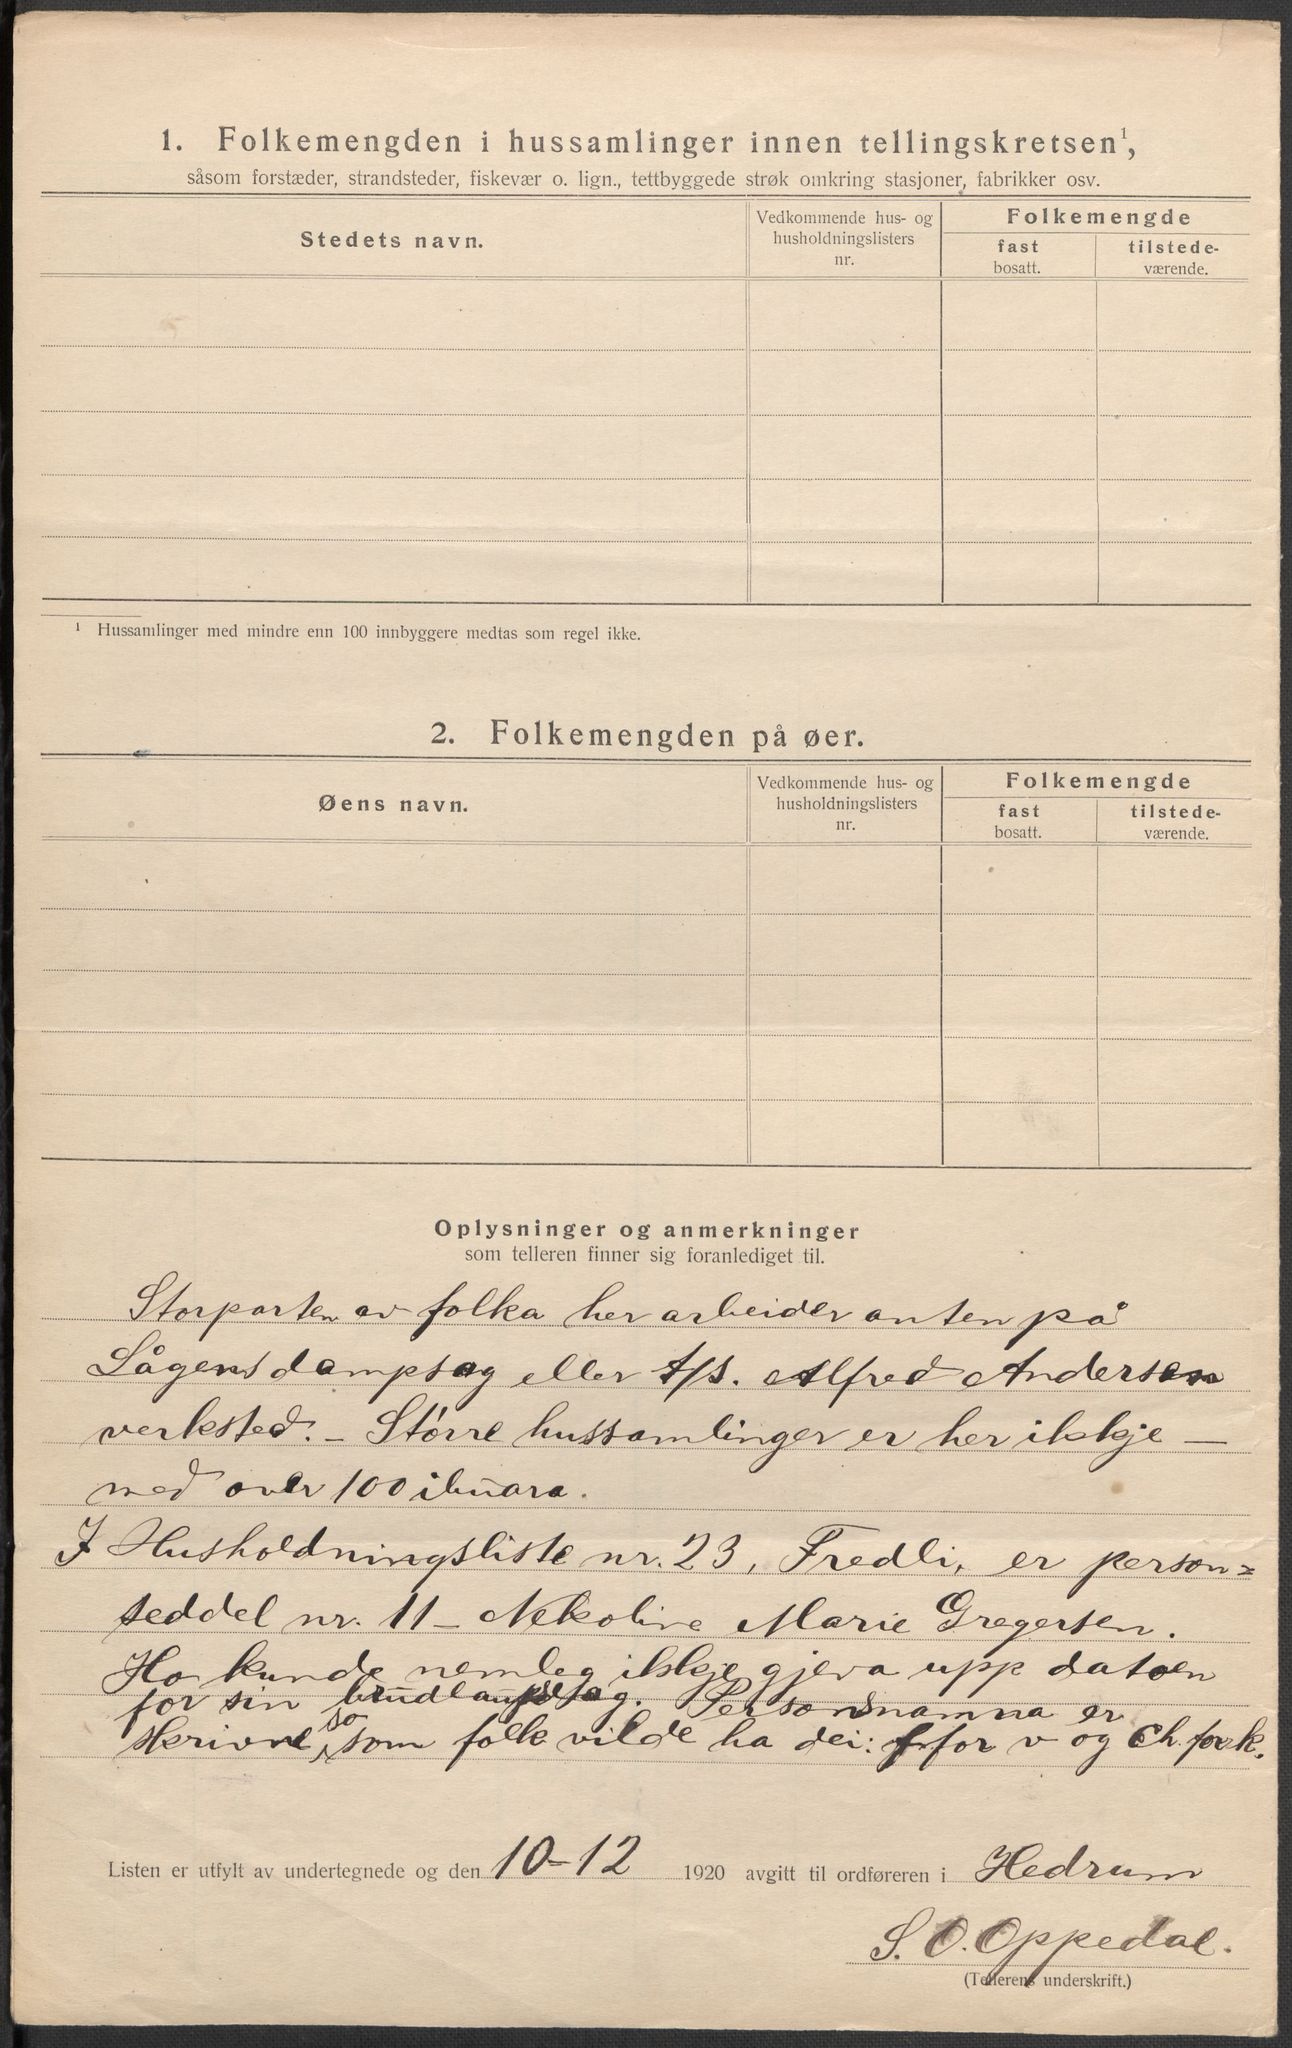 1. Folkemengden i hussamlinger innen tellingskretsen¹,
såsom forstæder, strandsteder, fiskevær o. lign., tettbyggede strøk omkring stasjoner, fabrikker osv.
Stedets navn.
Vedkommende hus- og
husholdningslisters
nr.
Folkemengde
fast
bosatt.
tilstede-
værende.
¹ Hussamlinger med mindre enn 100 innbyggere medtas som regel ikke.
2. Folkemengden på øer.
Øens navn.
Vedkommende hus- og
husholdningslisters
nr.
Folkemengde
fast
bosatt.
tilstede-
værende.
Oplysninger og anmerkninger
som telleren finner sig foranlediget til.
Storparten av folka her arbeider anten på
Lågens dampsag eller A/S. Alfred Andersen
verksted. – Større hussamlinger er her ikkje –
med over 100 ibuara.
I Husholdningsliste nr. 23, Fredli, er person=
seddel nr. 11 – Nekoline Marie Gregersen.
Ho kunde nemleg ikkje gjeva upp datoen
for sin brudlaupsdag. Personnamna er
skrivne so som folk vilde ha dei: f for v og Ch. for k.
Listen er utfylt av undertegnede og den 10–12 1920 avgitt til ordføreren i Hedrum
S. O. Oppedal.
(Tellerens underskrift.)